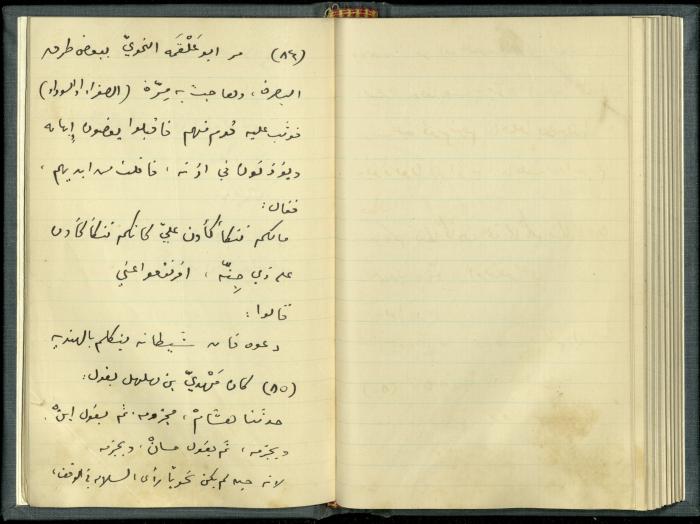 (٨٤) مر ابو عَلْقَمَه النحويّ ببعض طرق
البصرة، وهاجت به مِرّة (الصفراء او السوداء)
فوثب عليه قوم منهم فأقبلوا يعضون إبهامه
ويؤذنون في اذنه، فافلت من ايديهم،
فقال:
مالكم تتكأ كأون عليّ كانكم تتكأكأون
على ذي جِنّه، افرنقعوا عني
قالوا:
دعوه فان شيطانه يتكلم بالهنديه
(٨٥) كان مَهْديّ بن مهلهل يقول:
حدثنا هشامْ، مجزومه. ثم يقول ابنْ.
ويجزمه، ثم يقول حسانْ، ويجزمه
لانه حين لم يكن نحويا رأى السلامه في الوقف،